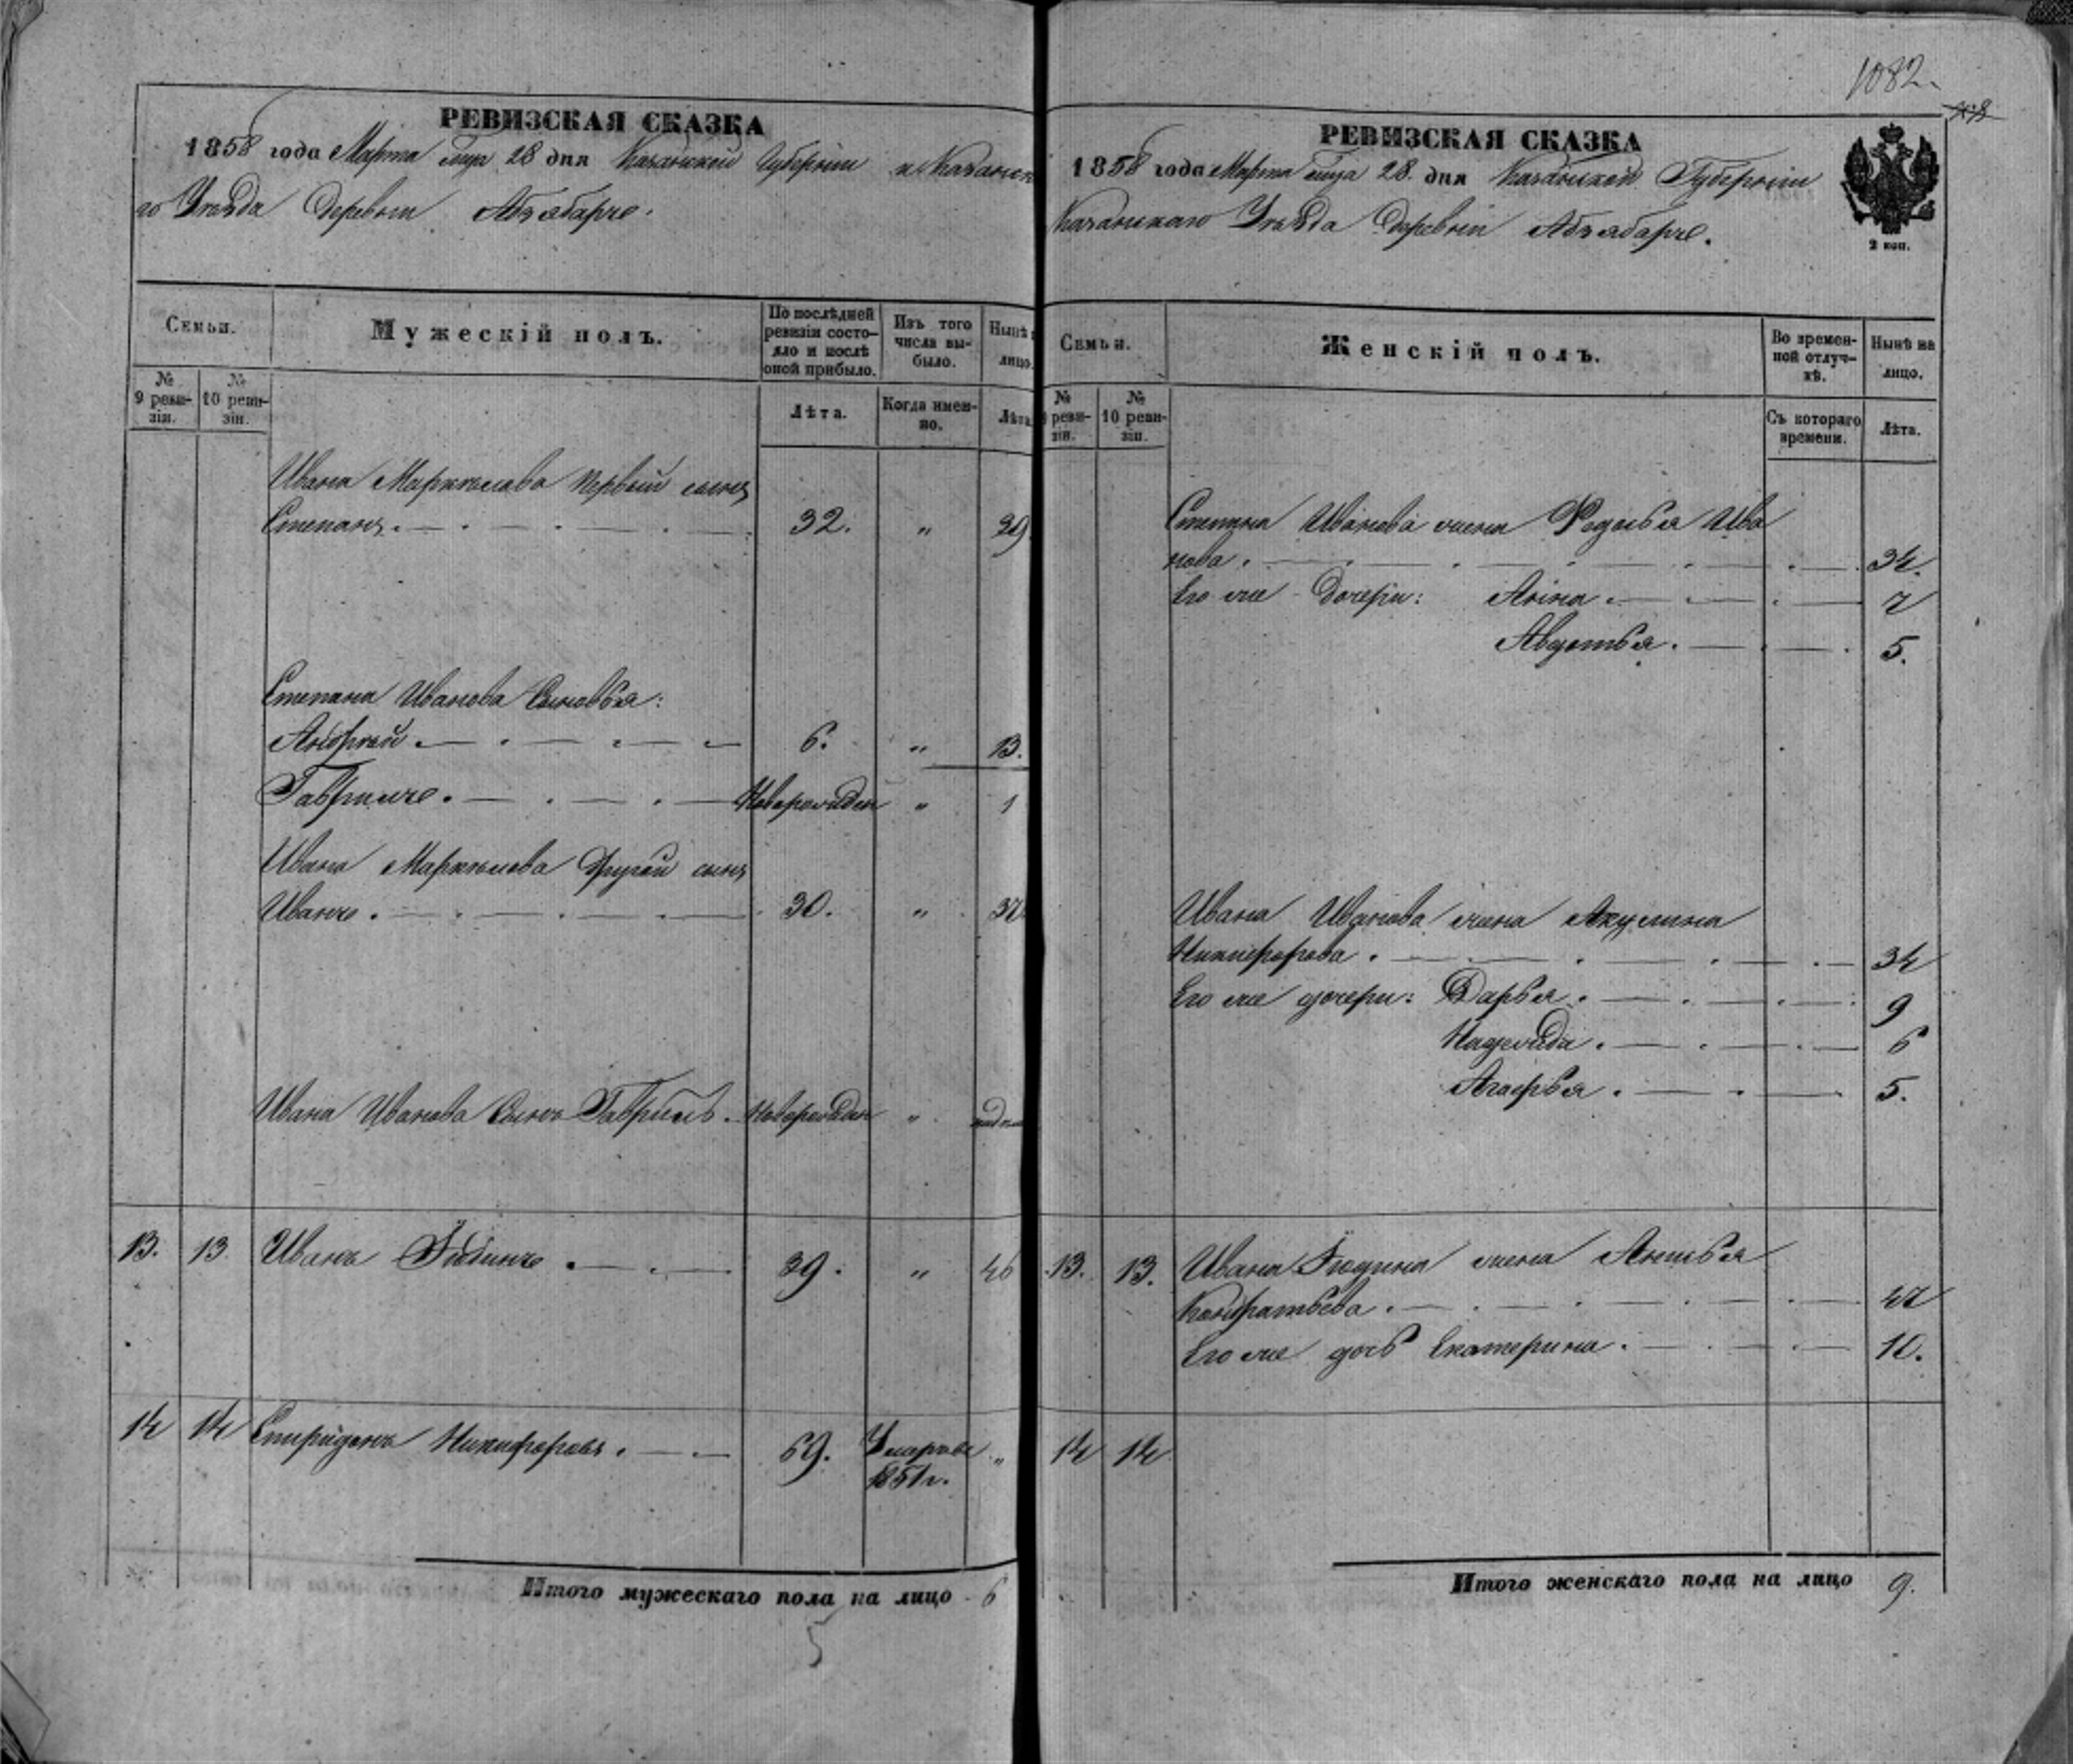 1082.
РЕВИЗСКАЯ СКАЗКА
1858 года Марта м̃ца 28 дня Казанской Губерніи и Казанска
го Уѣзда Деревни
Семьи.
Мужескій полъ.
По послѣдней ревизіи состо-яло и послѣ оной прибыло.
Изъ того числа вы-было.
Нынѣ
лицо.
№ 9 реви-зіи.
№ 10 реви-зіи.
Лѣта.
Когда имен-но.
Лѣта
Ивана Маркелова первый сынъ
Степанъ. 32. " 39
Степана Иванова Сыновья:
Андрей 6. " 13.
Гаврило. Новорожден " 1
Ивана Маркелова Другой сынъ
Иванъ. 30. " 37
Ивана Иванова Сынъ Гаврилъ. Новорожден "
13. 13 Иванъ 39. " 46
14 14 Спиридонъ Никифоровъ. 69. Умеръ въ 1851 г. "
Итого мужескаго пола на лицо 6
5
РЕВИЗСКАЯ СКАЗКА
1858 года Марта м̃ца 28. дня Казанской Губерніи
Казанскаго Уѣзда Деревни
2 коп.
Семьи.
Женскій полъ.
Во времен-ной отлуч-кѣ.
Нынѣ на лицо.
№ реви-зіи.
№ 10 реви-зіи.
Съ котораго времени.
Лѣта.
Степана Иванова жена Федосья Ива
нова. 34.
Его же Дочери: Анна 7
Авдотья. 5.
Ивана Иванова жена Акулина
Никифорова. 34
Его же дочери: Дарья. 9
Надежда. 6
Агафья. 5.
13. 13. Ивана жена
Кондратьева. 47
Его же дочь Екатерина. 10.
14 14
Итого женскаго пола на лицо 9.